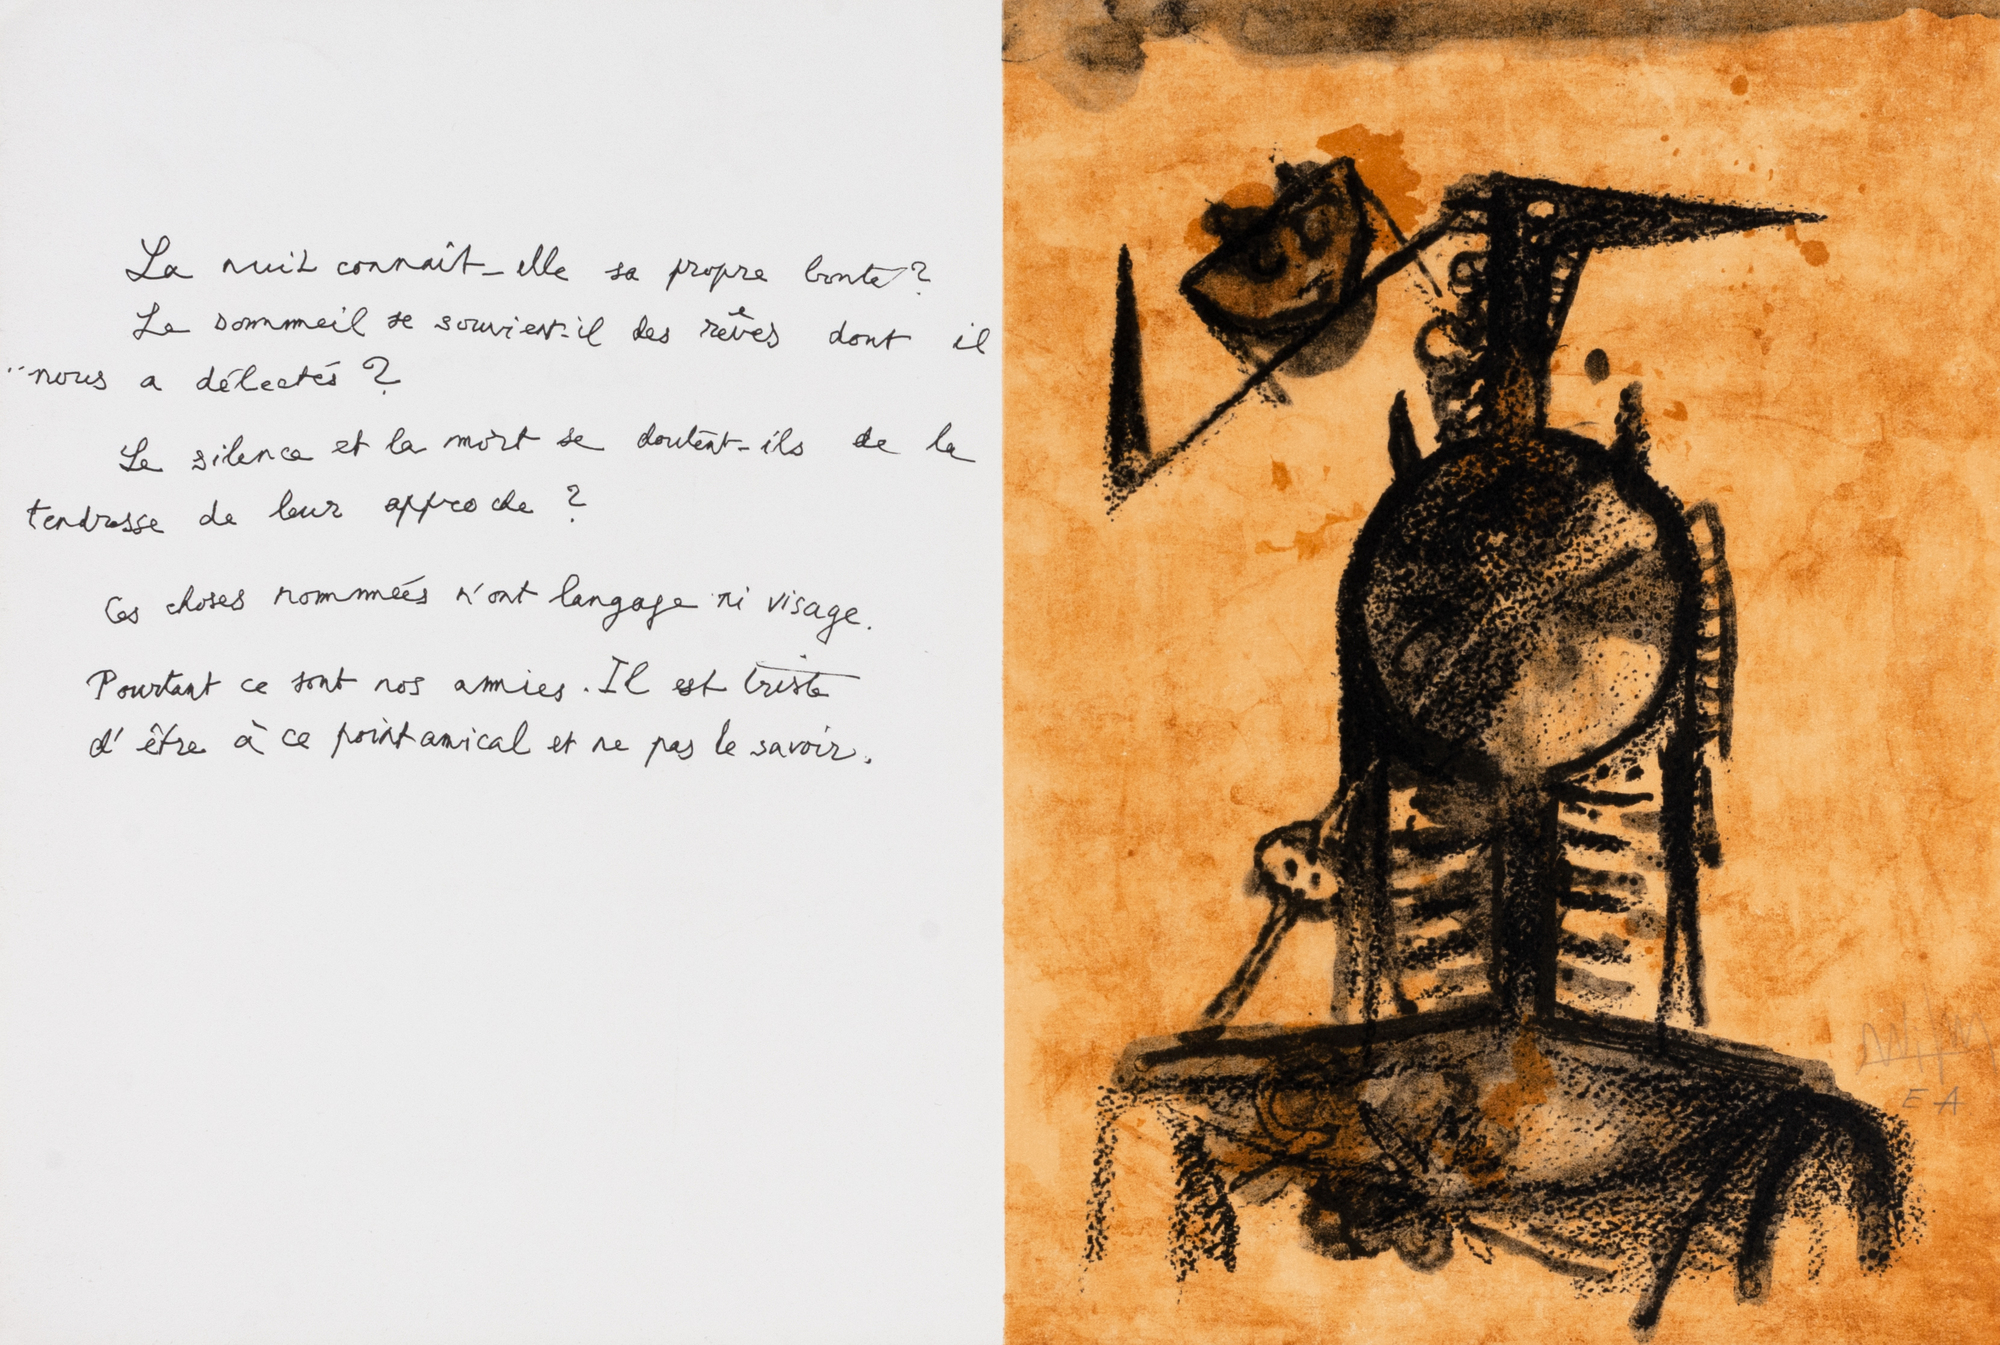 La nuit connaît-elle sa propre bonté ?
Le sommeil se souvient-il des rêves dont il
nous a délectés ?
Le silence et la mort se doutent-ils de la
tendresse de leur approche ?
Ces choses nommées n'ont langage ni visage.
Pourtant ce sont nos amies. Il est triste
d'être à ce point amical et ne pas le savoir.
E A